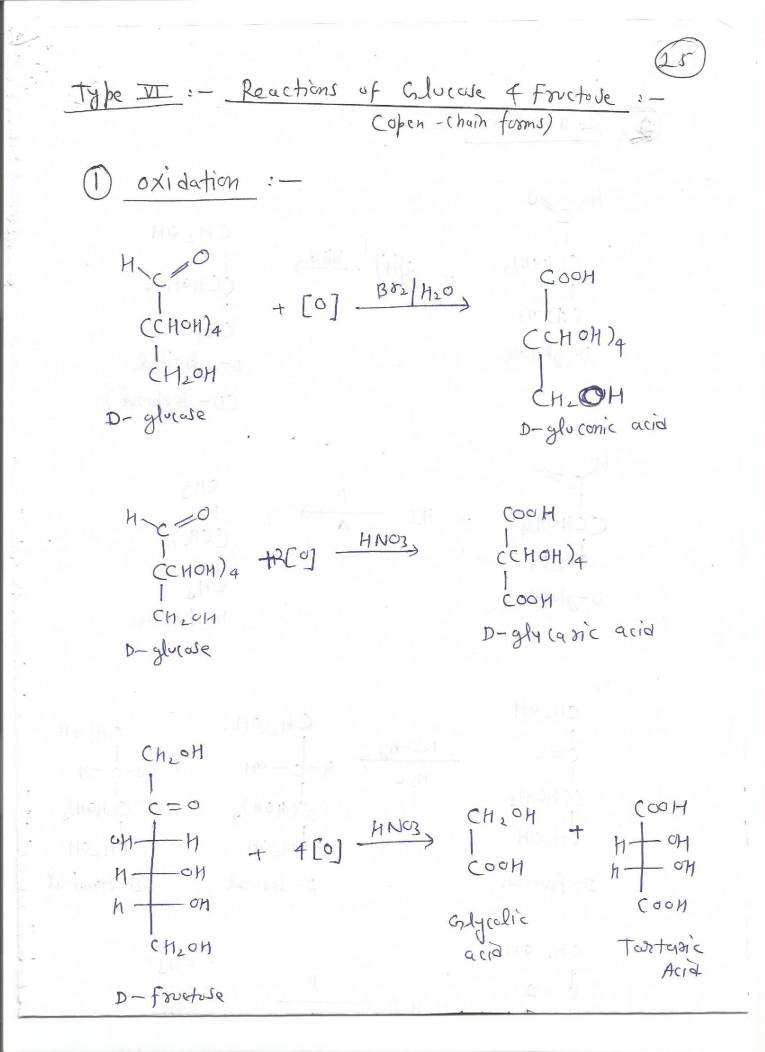 25
Type VI :- Reactions of Glucose & Fructose :-
(open-chain forms)
① oxidation :-
H O
C
(CHOH)4
CH2OH
D- glucose
+ [O] Br2/H2O
COOH
(CHOH)4
CH2OH
D-gluconic acid
H O
C
(CHOH)4
CH2OH
D-glucose
+2[O] HNO3
COOH
(CHOH)4
COOH
D-glycaric acid
CH2OH
C=O
OH H
H OH
H OH
CH2OH
D-fructose
+ 4[O] HNO3
CH2OH
COOH
Glycolic
acid
+
COOH
H OH
H OH
COOH
Tartaric
Acid